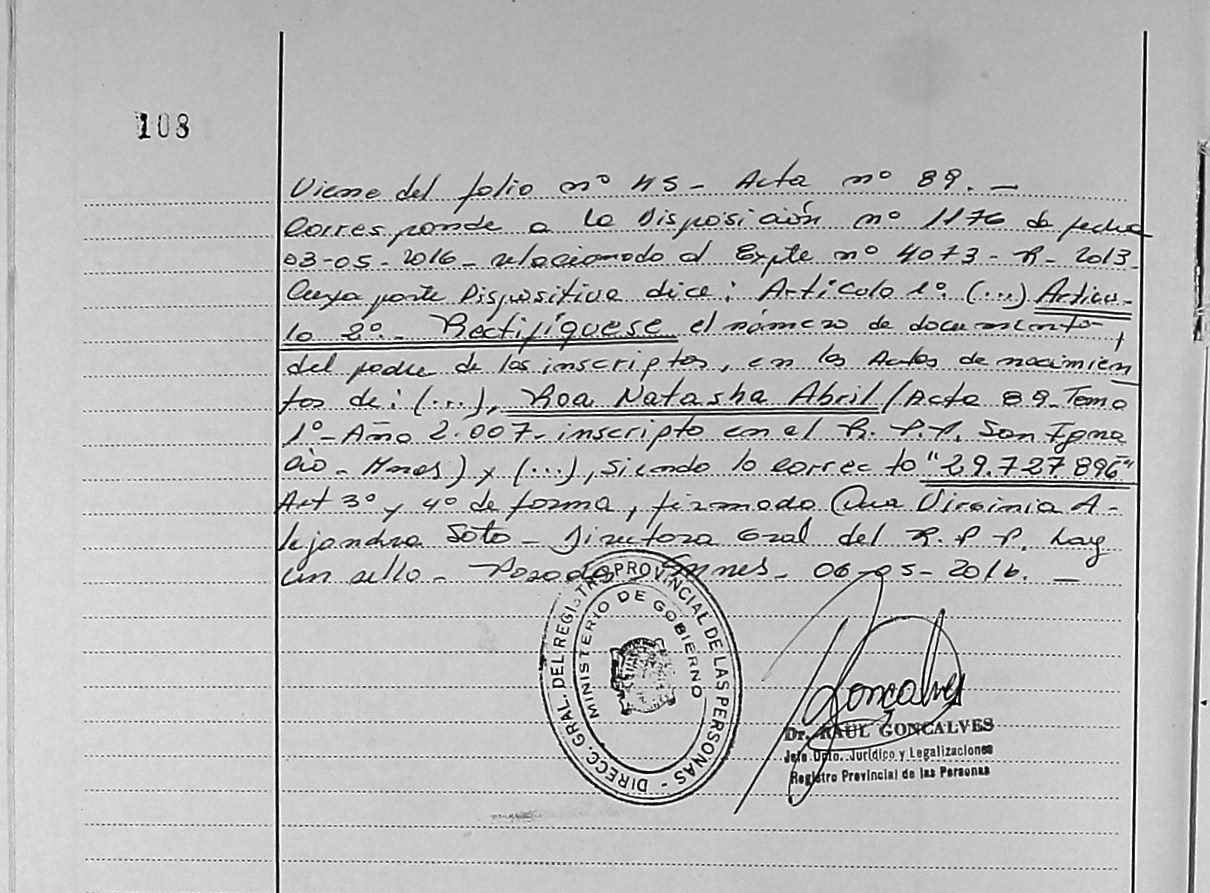 108
Viene del folio nº 45 - Acta nº 89. -
Corresponde a la Disposición nº 1176 de fecha
03-05-2016 - relacionado al Expte nº 4073 - R - 2013 -
Cuya parte Dispositiva dice: Artículo 1º. (...) Artícu-
lo 2º. - Rectifíquese el número de documento
del padre de los inscriptos, en las Actas de nacimien
tos de: (...), Roa Natasha Abril / Acta 89 - Tomo
1º - Año 2.007 - inscripto en el R. P. P. San Igna
cio - Mnes) y (...), siendo lo correcto "29.727.896"
Art 3º y 4º de forma, firmado Dra Virginia A-
lejandra Soto - Directora Gral del R. P. P. hay
un sello - Posadas Mnes - 06-05-2016. -
DIRECC. GRAL. DEL REGISTRO PROVINCIAL DE LAS PERSONAS -
MINISTERIO DE GOBIERNO
Goncalves
Dr. RAUL GONCALVES
Jefe Dpto. Jurídico y Legalizaciones
Registro Provincial de las Personas